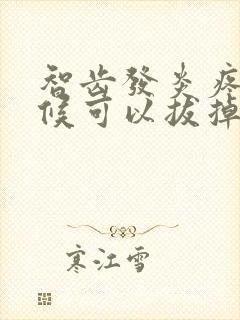 智齿發炎疼
候可以拔掉
寒江雪